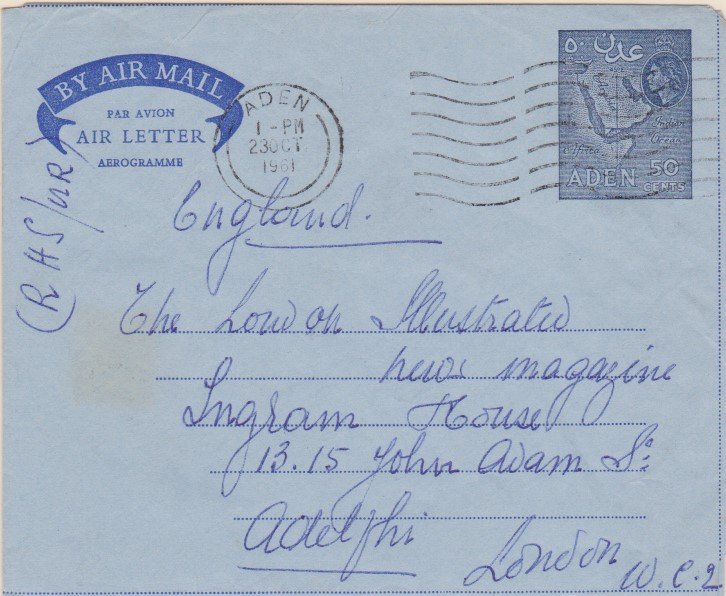 BY AIR MAIL
PAR AVION
AIR LETTER
AEROGRAMME
ADEN
1-PM
23 OCT
1961
٥٠ عدن
Africa
Indian
Ocean
ADEN 50
CENTS
(RHS/UR)
England.
The London Illustrated
news magazine
Ingram House
13.15 John Adam St:
Adelphi
London
W.C.2